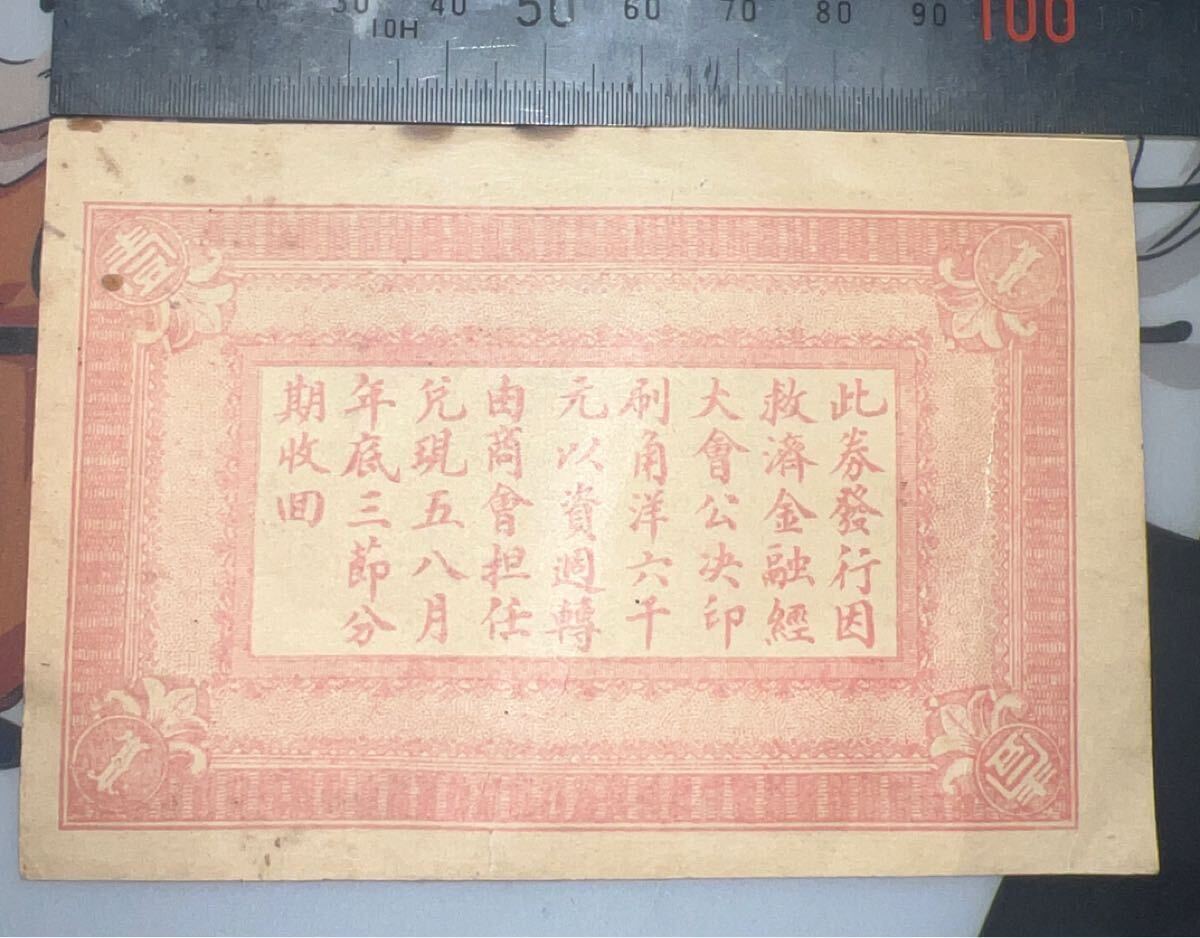 20 30 40 50 60 70 80 90 100
10H
壹
1
此券發行因
救濟金融經
大會公决印
刷角洋六千
元以資週轉
由商會担任
兌現五八月
年底三節分
期收囬
1
壹